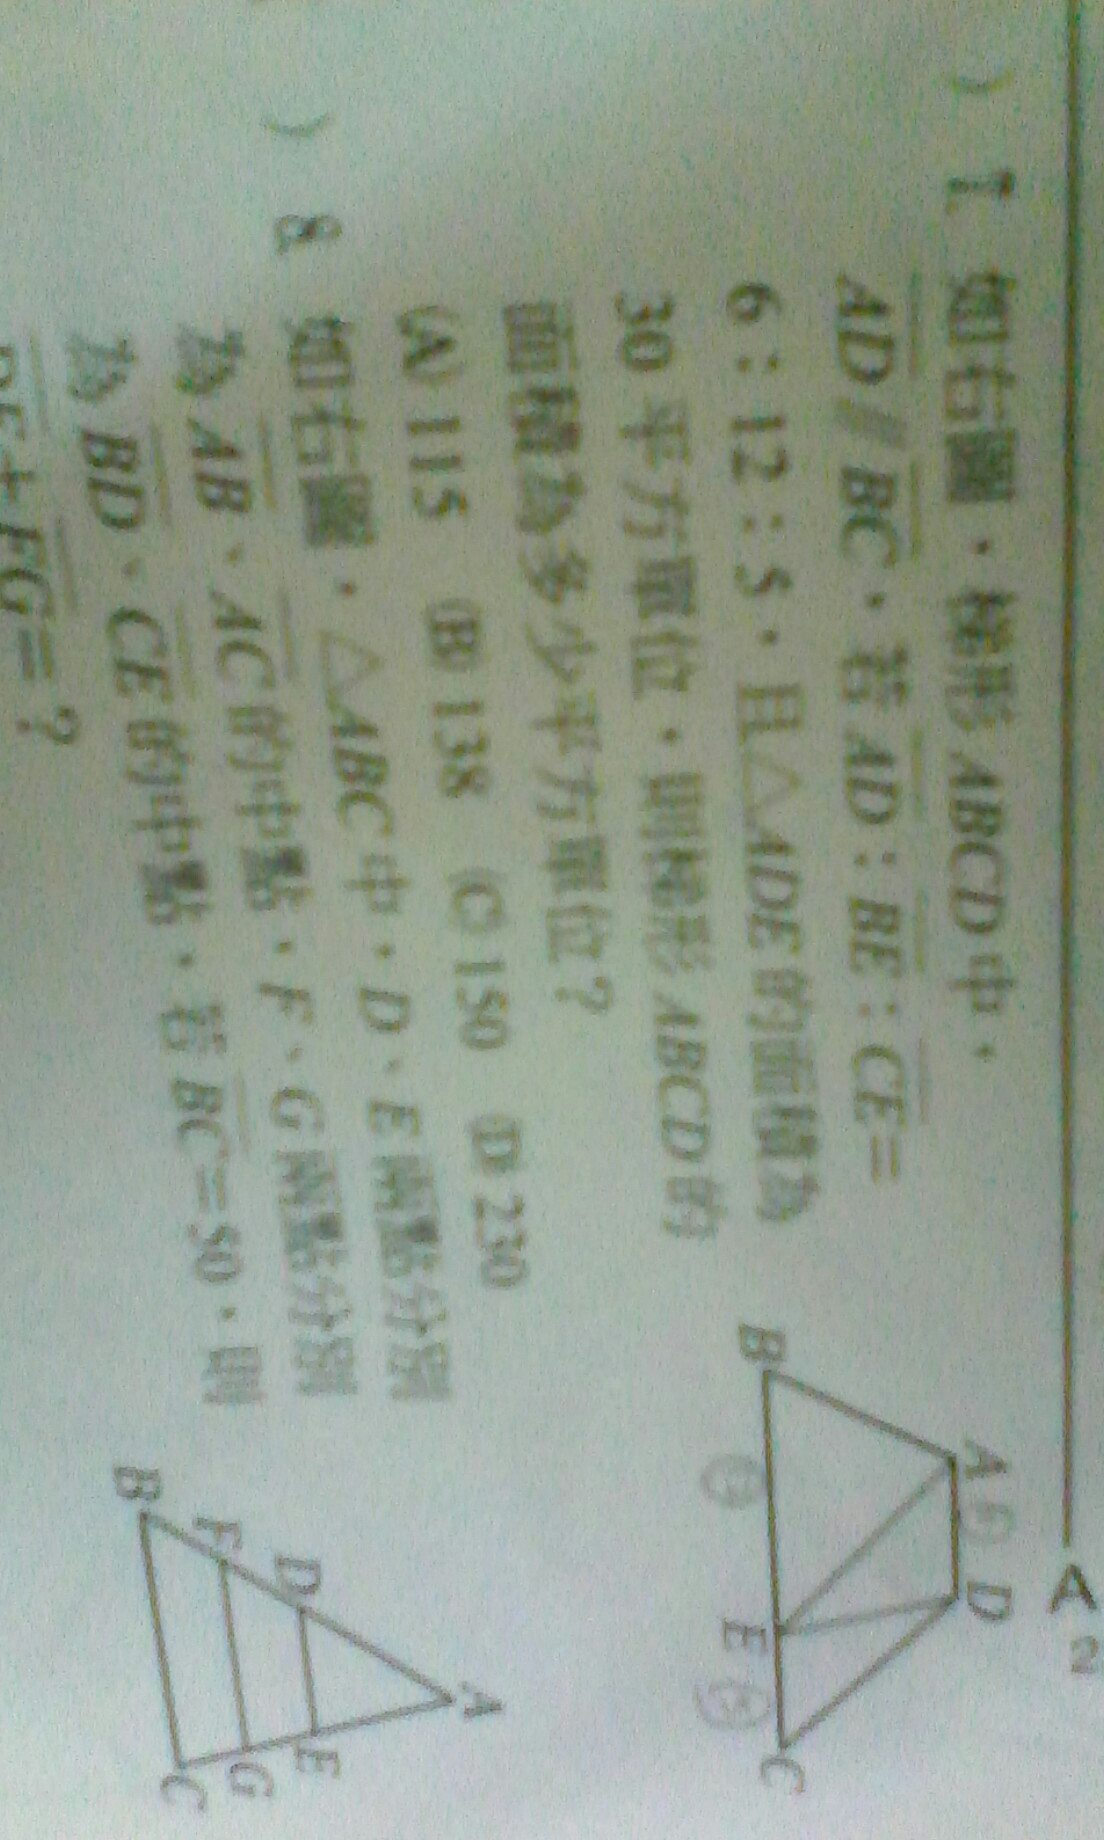 A
2
) 7. 如右圖，梯形ABCD中，
AD // BC，若AD：BE：CE＝
6：12：5，且△ADE的面積為
30平方單位，則梯形ABCD的
面積為多少平方單位？
(A) 115 (B) 138 (C) 150 (D) 230
A 6 D
B E C
) 8. 如右圖，△ABC中，D、E兩點分別
為AB、AC的中點，F、G兩點分別
為BD、CE的中點，若BC＝50，則
DE＋FG＝？
A
D E
F G
B C